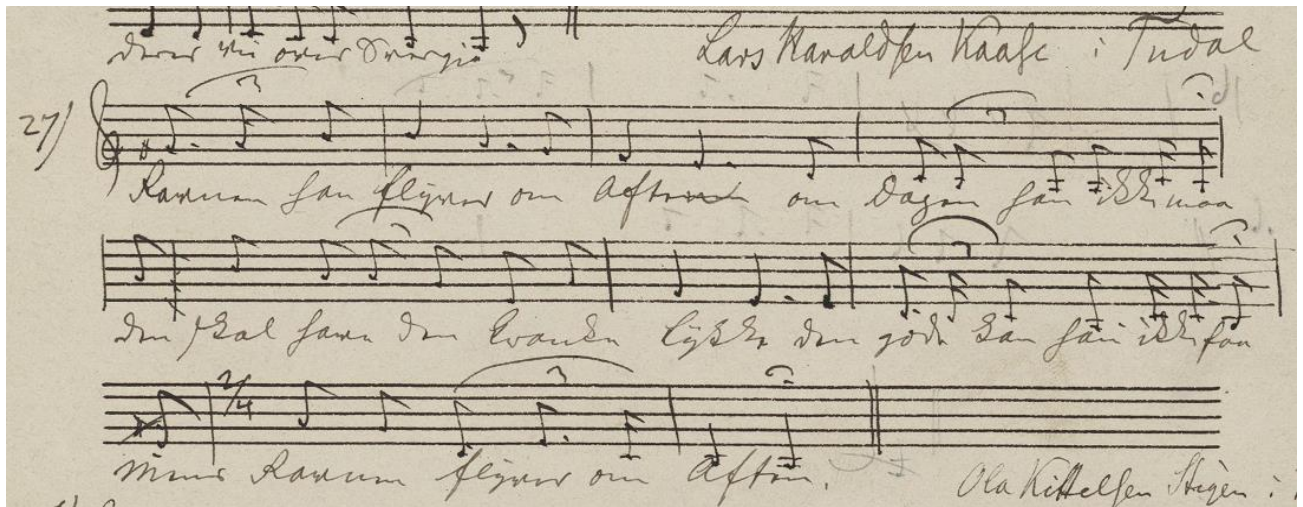 derer vie over Svergie
Lars Haraldsen Kaase i Tudal
27)
Ravnen han flyver om Aftnen om Dagen han ikke maa
den skal have den vranke Lykke den gode kan han ikke faa
2/4
mens Ravnen flyver om Aften.
Ola Kittelsen Stigen i